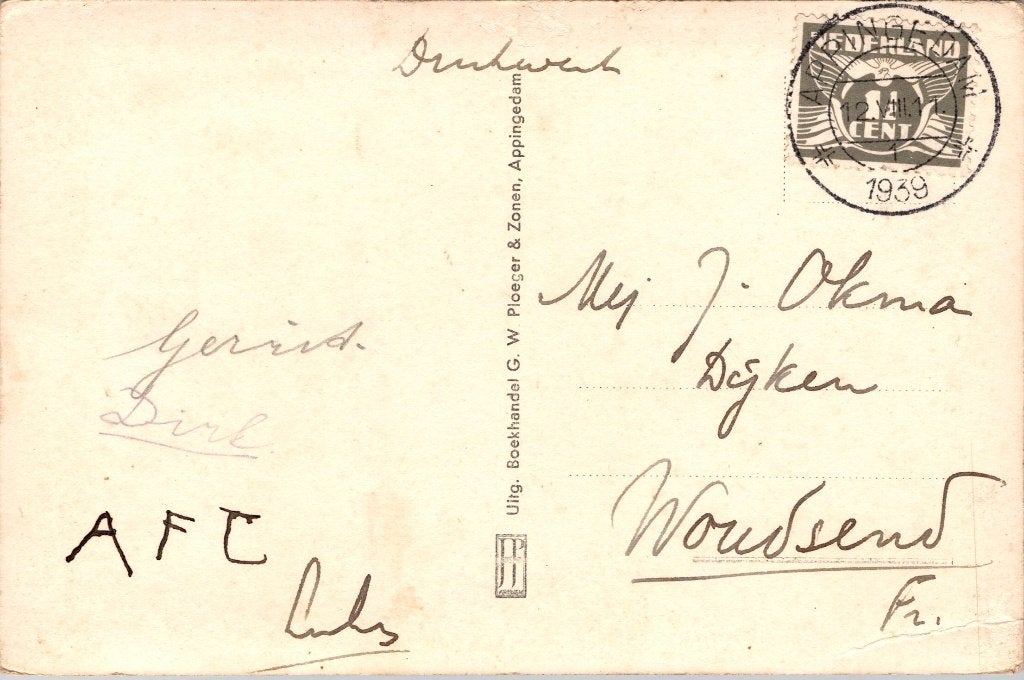 Drukwerk
NEDERLAND
1½
CENT
APPINGEDAM
12.VIII.11.
1
1939
Mej J. Okma
Dijken
Woudsend
Fr.
Gerrit.
Dirk
A F C
Uitg. Boekhandel G. W Ploeger & Zonen, Appingedam